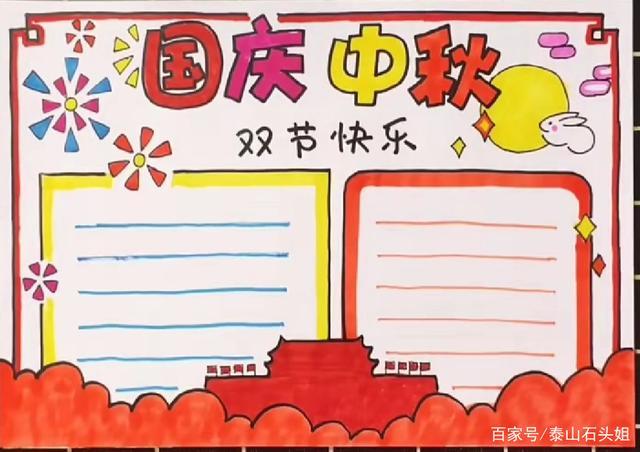 国庆中秋
双节快乐
百家号/泰山石头姐